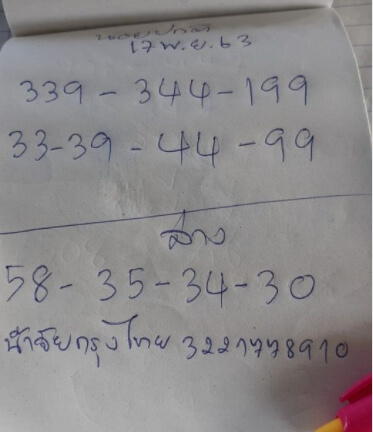 17 พ.ย. 63
339 - 344 - 199
33-39 - 44 - 99
ล่าง
58 - 35 - 34 - 30
น้ำชัยกรุงไทย 3221778910